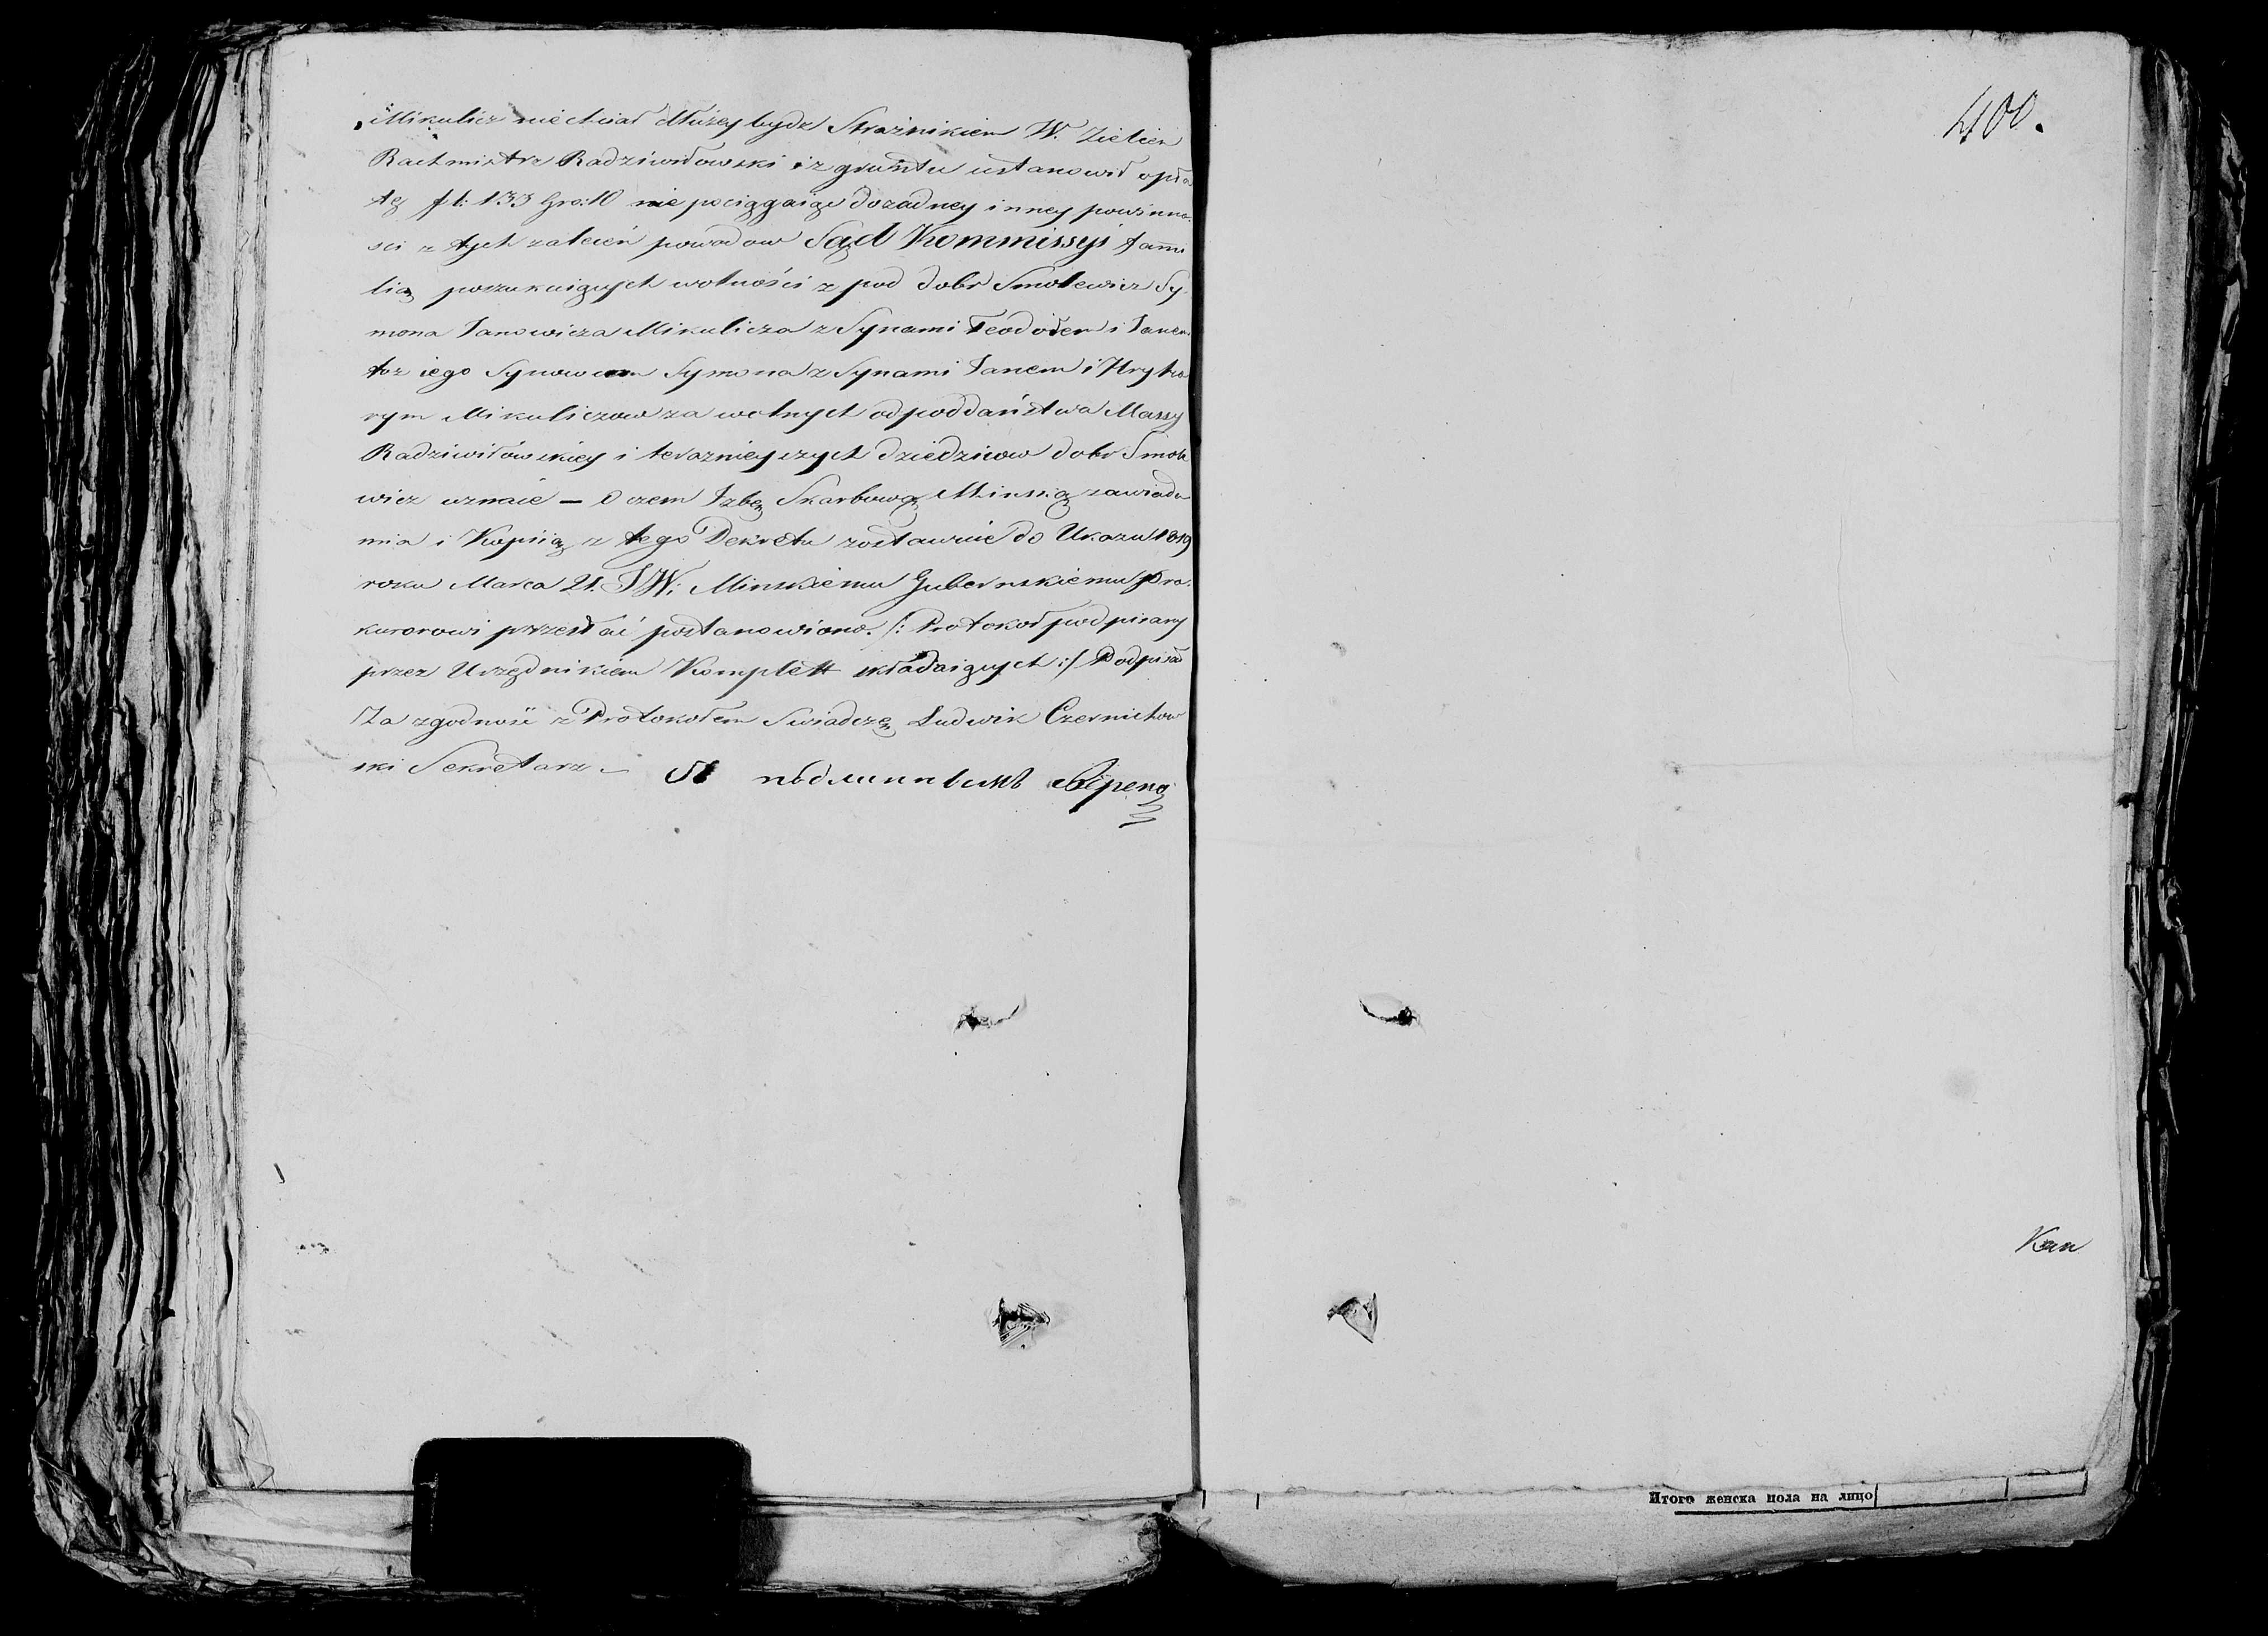 Mikulicz niechciał dłużey bydz Strażnikiem W. Zielien
Rachmistrz Radziwiłowski iz gruntu ustanowił opła
tę fl: 133 Gro: 10 nie pociągaiąc dozadney inney powinno
ści z tych zaleceń powodow Sąd Kommissyi fami
lią poszukuiących wolności z pod dobr Smolewicz Sy
mona Janowicza Mikulicza z Synami Teodorem i Janem
toz iego Synowcem Symona z Synami Janem i Hryho
rym Mikuliczow za wolnych od poddaństwa Massy
Radziwiłowskiey i terazniejszych dziedzicow dobr Smole
wicz uznaie — O czem Izbę Skarbową Minską zawiado
mia i Kopiią z tego Dekretu zostawnie do Ukazu 1819
roku Marca 21. JW. Minskiemu Gubernskiemu Pro:
kurorowi przesłać postanowiono. /: Protokoł podpisany
przez Urzędnikiem Komplett składaiących :/ Podpisał
Za zgodność z Protokołem Swiadczę Ludwik Czernichow
ski Sekretarz —
Съ подлиннымъ верно
400.
Итого женска пола на лицо